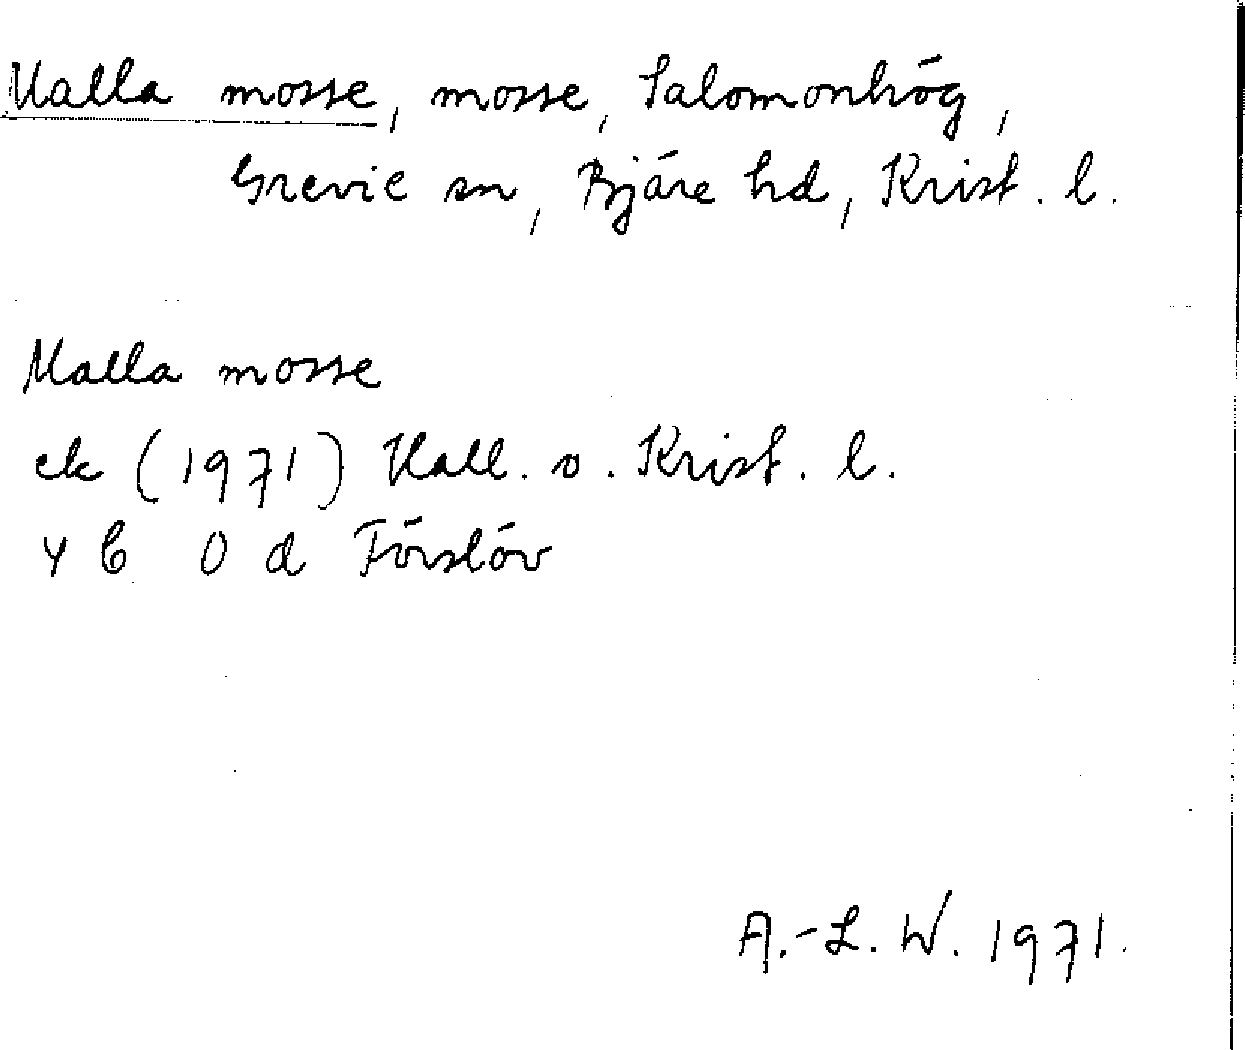 Malla mosse, mosse, Salomonhög,
Grevie sn, Bjäre hd, Krist. l.
Malla mosse
ek (1971) Hall. o. Krist. l.
4 C 0 d Förslöv
A.-L. W. 1971.